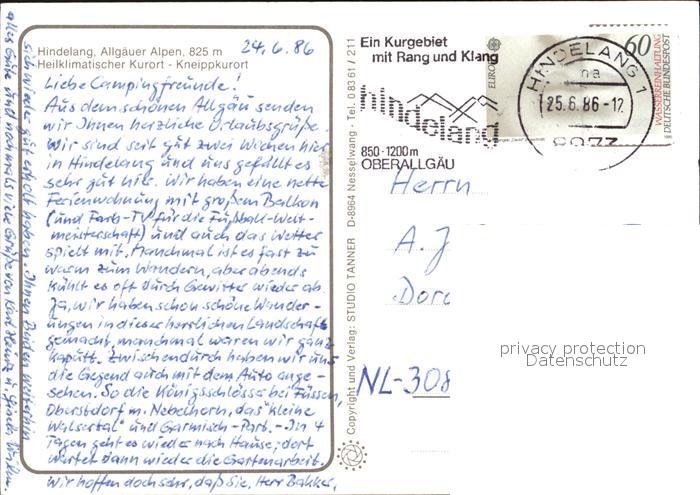 Hindelang, Allgäuer Alpen, 825 m
Heilklimatischer Kurort - Kneippkurort
24.6.86
Liebe Campingfreunde!
Aus dem schönen Allgäu senden
wir Ihnen herzliche Urlaubsgrüße.
Wir sind seit gut zwei Wochen hier
in Hindelang und uns gefällt es
sehr gut hier. Wir haben eine nette
Ferienwohnung mit großem Balkon
(und Farb-TV für die Fußball-Welt-
meisterschaft) und auch das Wetter
spielt mit. Manchmal ist es fast zu
warm zum Wandern, aber abends
kühlt es oft durch Gewitter wieder ab.
Ja, wir haben schon schöne Wander-
ungen in dieser herrlichen Landschaft
gemacht, manchmal waren wir ganz
kaputt. Zwischendurch haben wir uns
die Gegend auch mit dem Auto ange-
sehen. So die Königsschlösser bei Füssen,
Oberstdorf m. Nebelhorn, das "kleine
Walsertal" und Garmisch-Part. - In 4
Tagen geht es wieder nach Hause, dort
wartet dann wieder die Gartenarbeit.
Wir hoffen doch sehr, daß Sie, Herr Bakker,
sich wieder gut erholt haben. Ihnen Beiden weiterhin
alles Gute und nochmals viele Grüße von Karl Heinz u.
Copyright und Verlag: STUDIO TANNER D-8964 Nesselwang - Tel. 0 83 61 / 211
Ein Kurgebiet
mit Rang und Klang
hindelang
850-1200m
OBERALLGÄU
HINDELANG 1
na
25.6.86-12
8973
EUROPA
60
WASSERREINHALTUNG
DEUTSCHE BUNDESPOST
Herrn
A. J
Dorc
NL-308
privacy protection
Datenschutz